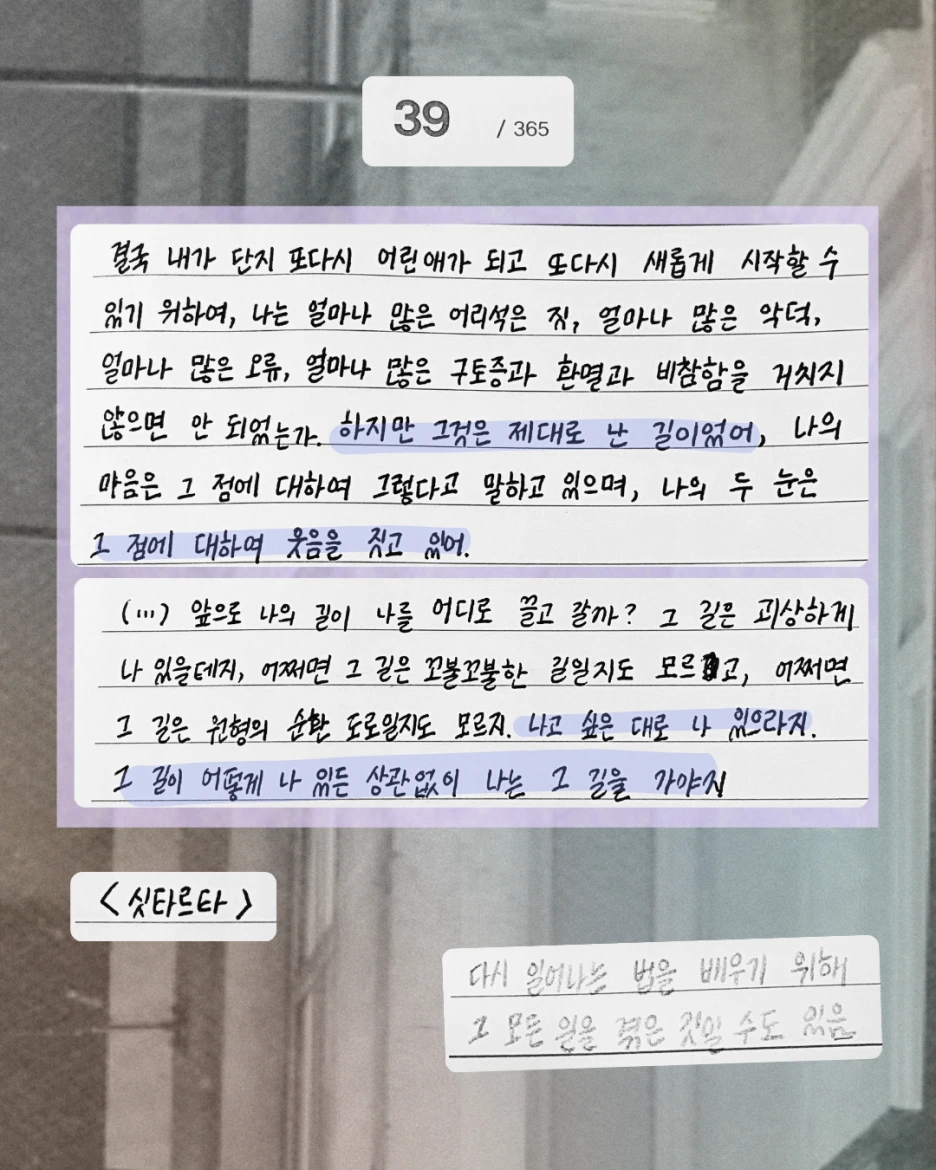 39 / 365
결국 내가 단지 또다시 어린애가 되고 또다시 새롭게 시작할 수
있기 위하여, 나는 얼마나 많은 어리석은 짓, 얼마나 많은 악덕,
얼마나 많은 오류, 얼마나 많은 구토증과 환멸과 비참함을 거치지
않으면 안 되었는가. 하지만 그것은 제대로 난 길이었어, 나의
마음은 그 점에 대하여 그렇다고 말하고 있으며, 나의 두 눈은
그 점에 대하여 웃음을 짓고 있어.
(...) 앞으로 나의 길이 나를 어디로 끌고 갈까? 그 길은 괴상하게
나 있을테지, 어쩌면 그 길은 꼬불꼬불한 길일지도 모르고, 어쩌면
그 길은 원형의 순환 도로일지도 모르지. 나고 싶은 대로 나 있으라지.
그 길이 어떻게 나 있든 상관없이 나는 그 길을 가야지
<싯타르타>
다시 일어나는 법을 배우기 위해
그 모든 일을 겪은 것일 수도 있음